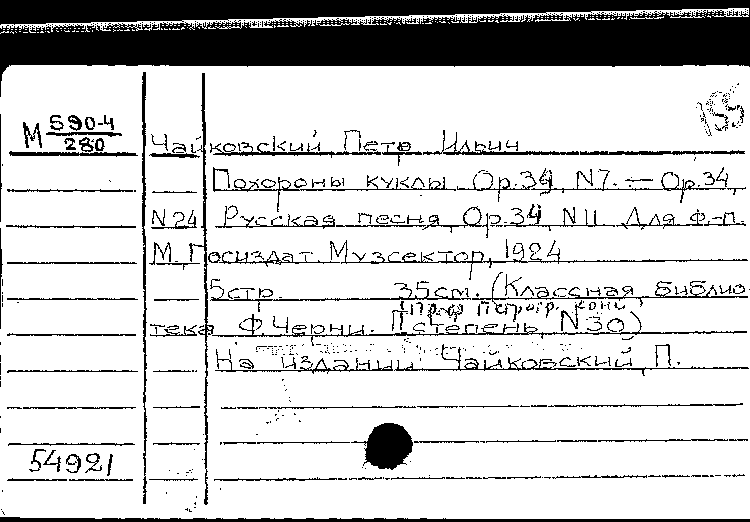 155
М 590-4
280
Чайковский, Петр Ильич
Похороны куклы. Ор.34, N7. — Ор.34,
N24 Русская песня, Ор.34, N11 Для ф.-п.
М. Госиздат. Музсектор, 1924
5стр. 35см. (Классная библио-
проф. Петрогр. конс.
тека Ф. Черни. II степень, N30)
На издании Чайковский, П.
54921